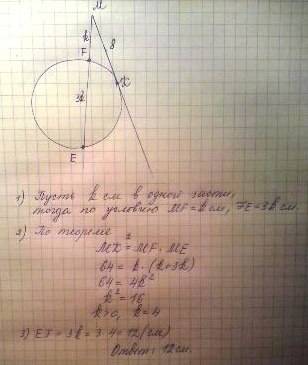 M
k
8
F
K
3k
E
1) Пусть k см в одной части,
тогда по условию MF = k см, FE = 3k см.
2) По теореме
MK² = MF · ME
64 = k · (k+3k)
64 = 4k²
k² = 16
k>0, k=4
3) EF = 3k = 3·4 = 12 (см)
Ответ: 12 см.